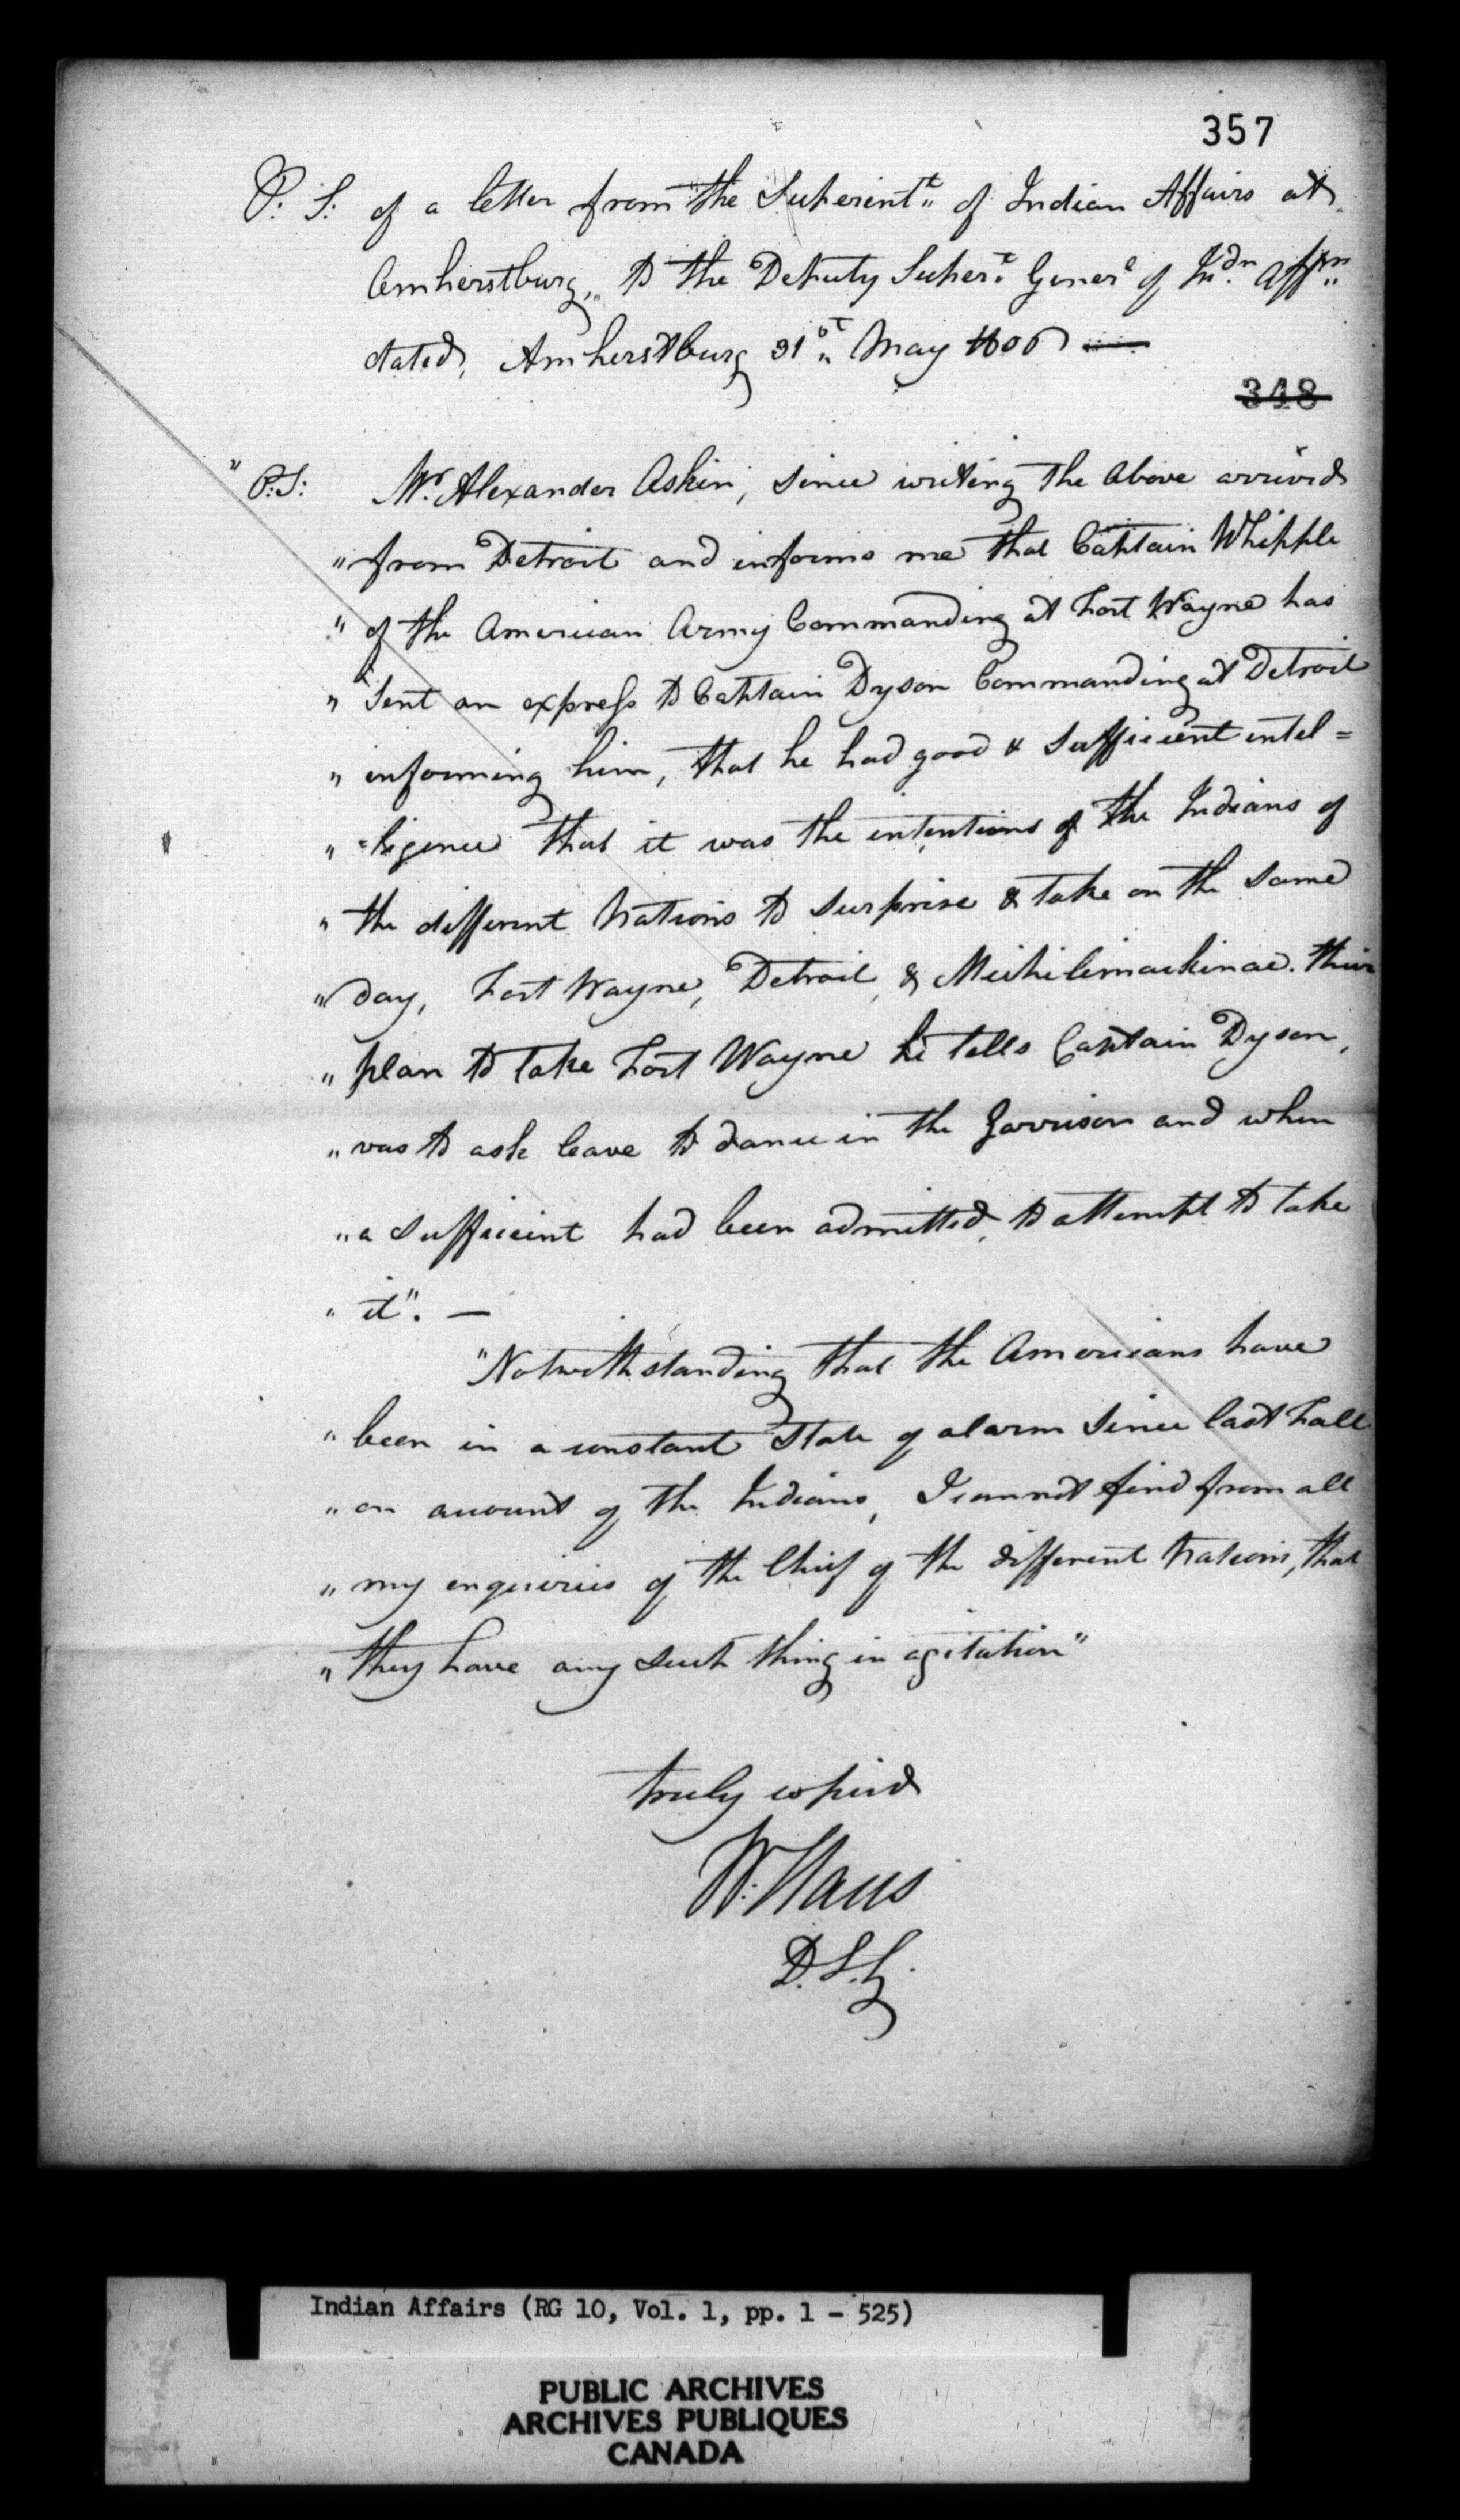 357
P: S: of a letter from the Superint.t of Indian Affairs at
Amherstburg, to the Deputy Super.t Gener.l of In.dn Aff.rs
dated, Amherstburg 31.st May 1806 —
348
" P:S: Mr. Alexander Askin, since writing the above arrived
" from Detroit and informs me that Captain Whipple
" of the American Army Commanding at Fort Wayne has
" Sent an express to Captain Dyson Commanding at Detroit
" informing him, that he had good & sufficient intel=
" =ligence that it was the intentions of the Indians of
" the different Nations to surprise & take on the same
" day, Fort Wayne, Detroit, & Michilimackinac. their
" plan to take Fort Wayne he tells Captain Dyson,
" was to ask leave to dance in the Garrison and when
" a sufficient had been admitted, to attempt to take
" it". —
"Notwithstanding that the Americans have
" been in a constant state of alarm since last Fall
" on account of the Indians, I cannot find from all
" my enquiries of the Chief of the different Nations, that
" they have any such thing in agitation"
truly copied
W: Claus
D.S.G.
Indian Affairs (RG 10, Vol. 1, pp. 1 - 525)
PUBLIC ARCHIVES
ARCHIVES PUBLIQUES
CANADA